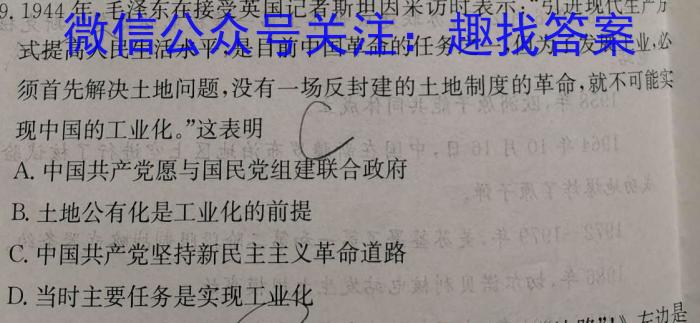 9. 1944 年,毛泽东在接受英国记者斯坦因采访时表示:“引进现代生产方
式提高人民生活水平,是目前中国革命的任务
业,必
微信公众号关注:趣找答案
须首先解决土地问题,没有一场反封建的土地制度的革命,就不可能实
现中国的工业化。”这表明
A. 中国共产党愿与国民党组建联合政府
B. 土地公有化是工业化的前提
C. 中国共产党坚持新民主主义革命道路
D. 当时主要任务是实现工业化
左边是